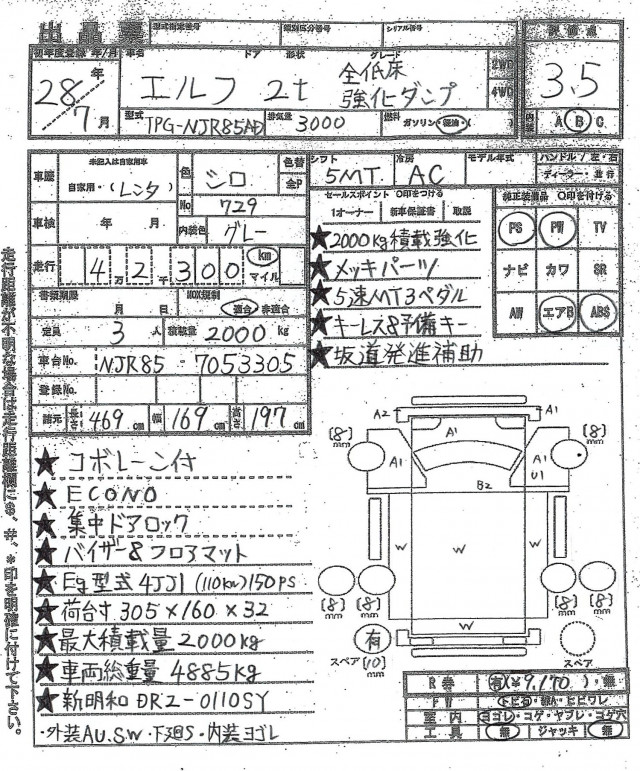 出品票
型式指定番号 類別区分番号 シリアル番号
初年度登録 年/月 車名 ドア 形状 グレード 評価点
28年 7月 エルフ 2t 全低床 強化ダンプ 2WD 4WD 3.5
型式 TPG-NJR85AD 排気量 3000 燃料 ガソリン・軽油・( ) 内装 A B C
車歴 未記入は自家用車 自家用・(レンタ) 色 シロ 色替 全P
No 729
車検 年 月 内装色 グレー
走行 4万2千300 km マイル
書類期限 月 日 NOX規制 適合 非適合
定員 3人 積載量 2000kg
車台No. NJR85-7053305
登録No.
諸元 長さ 469cm 幅 169cm 高さ 197cm
シフト 5MT 冷房 AC モデル年式 ハンドル/左・右
ディーラー・並行
セールスポイント ○印をつける
1オーナー 新車保証書 取説
★2000kg積載強化
★メッキパーツ
★5速MT3ペダル
★キーレス&予備キー
★坂道発進補助
純正装備品 ○印を付ける
PS PW TV
ナビ カワ SR
AW エアB ABS
★コボレーン付
★ECONO
★集中ドアロック
★バイザー&フロアマット
★Eg型式4JJ1(110kw)150PS
★荷台寸305×160×32
★最大積載量2000kg
★車両総重量4885kg
★新明和DR2-0110SY
・外装AU.SW・下廻S・内装ヨゴレ
A2 A1
[8]mm A1 [8]mm
A1 A1
U1
B2
W W W
[8]mm [8]mm W [8]mm [8]mm
有
スペア[10]mm スペア
R券 有(¥9,170)・無
FW トビ石・線A・ヒビワレ
室内 ヨゴレ・コゲ・ヤブレ・コゲ穴
工具 無 ジャッキ 無
走行距離が不明な場合は走行距離欄に$、#、*印を明確に付けて下さい。